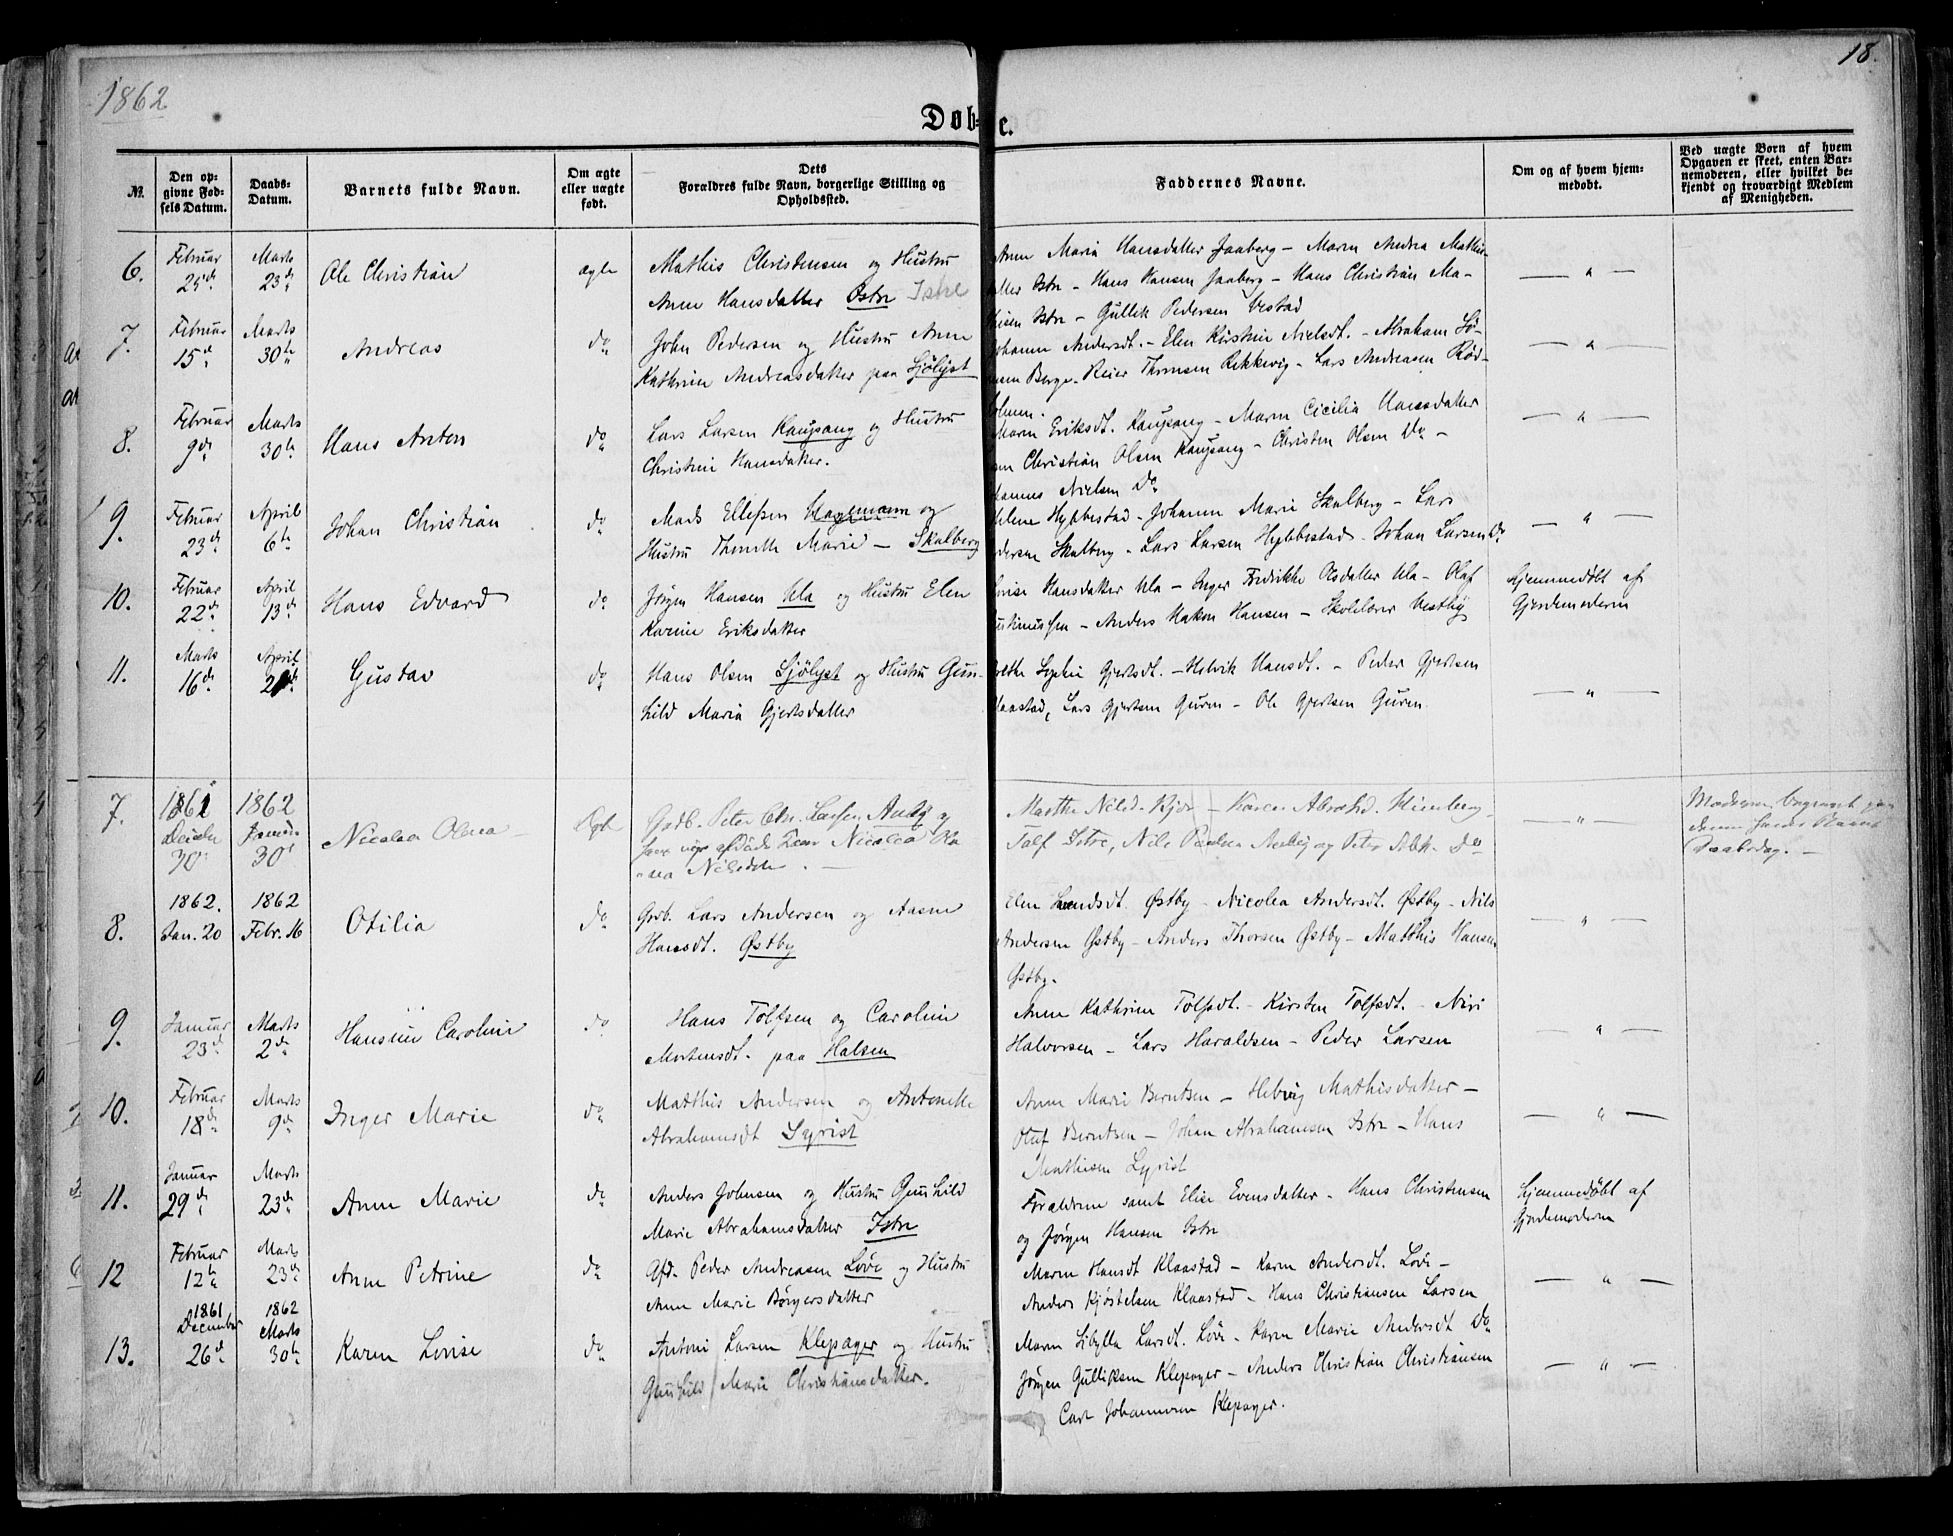 1862
18.
Døb=
te.
№.
Den op-
givne Fød-
sels Datum.
Daabs-
Datum.
Barnets fulde Navn.
Om ægte
eller uægte
født.
Dets
Forældres fulde Navn, borgerlige Stilling og
Opholdssted.
Faddernes Navne.
Om og af hvem hjem-
medøbt.
Ved uægte Børn af hvem
Opgaven er skeet, enten Bar-
nemoderen, eller hvilket be-
kjendt og troværdigt Medlem
af Menigheden.
6. Februar 25de Marts 23de Ole Christian ægte Mathis Christensen og Hustru
Anne Hansdatter Østre Istre
Anne Maria Hansdatter Jaaberg - Maren Andrea Mathis-
datter Istre - Hans Hansen Jaaberg - Hans Christian Ma-
thisen Istre - Gullik Pedersen Vestad
7. Februar 15d Marts 30te Andreas do John Pedersen og Hustru Anne
Kathrine Andreasdatter paa Sjølyst
Johanne Andersdt. - Elen Kirstine Nielsdt. - Abraham
Berge - Reier Thomsen Rekkevig - Lars Andreasen Rød-
holmen.
8. Februar 9de Marts 30te Hans Anton do Lars Larsen Kaupang og Hustru
Christine Hansdatter.
Maren Eriksdt. Kaupang - Maren Cicilia Hansdatter
Christian Olsen Kaupang - Christen Olsen Do -
Nielsen Do
9. Februar 23de April 6te Johan Christian do Mads Ellefsen Hagemann og
Hustru Marie - Skalberg
Helene Hybbestad - Johanne Marie Skalberg - Lars
Pedersen Skalberg - Lars Larsen Hybbestad - Johan Larsen Do
10. Februar 22de April 13de Hans Edvard do Jørgen Hansen Ula og Hustru Elen
Karine Eriksdatter
Lovise Hansdatter Ula - Inger Fredrikke Olsdatter Ula - Olaf
- Anders Hakon Hansen - Skolelærer Vestby
Hjemmedøbt af
Gjordemoderen
11. Marts 16de April Gustav do Hans Olsen Sjølyst og Hustru Gun-
hild Maria Gjertsdatter
Sophie Gjertsdt. - Helvik Hansdt. - Peder Gjertsen
Klaastad, Lars Gjertsen Guren - Ole Gjertsen Guren
7. 1861 30 1862 Januar 30 Nicolea Olava Ægte Gadb. Peter Chr. Larsen og
Nicolea Ola
va Nilsdtr. -
Marthe Nilsd. Kjær - Karen Abrahd. -
Tolf Istre, Nils Paulsen og Peter Do
Moderen begravet paa
denne hendes Barns
Daabsdag. -
8. 1862. Jan. 20 1862 Febr. 16 Otilia do Grdb. Lars Andersen og Aasne
Hansdt. Østby
Elen Østby - Nicolea Andersdt. Østby - Nils
Andersen Østby - Anders Thorsen Østby - Matthis Hansen
Østby.
9. Januar 23d Marts 2de Hansine Caroline do Hans Tolfsen og Caroline
Mortensdt. paa Halsen
Anne Kathrine Tolfsdt. - Kirsten Tolfsdt. -
Halvorsen - Lars Haraldsen - Peder Larsen
10. Februar 18de Marts 9de Inger Marie do Matthis Andersen og Antonette
Abrahamsdt Syrist
Anne Marie Berntsen - Helvig Mathisdatter -
Oluf Berntsen - Johan Abrahamsen Istre - Hans
Mathisen Syrist
11. Januar 29de Marts 23de Anne Marie do Anders Johnsen og Hustru Gunhild
Marie Abrahamsdatter Istre
Forældrene samt Elise Evensdatter - Hans Christensen
og Jørgen Hansen Istre
Hjemmedøbt af
Gjordemoderen
12 Februar 12te Marts 23de Anne Petrine do Afd. Peder Andreasen Løve og Hustru
Anne Marie Børgersdatter
Maren Hansdt Klaastad - Karen Andersdt. Løve -
Anders Kjøstelsen Klaastad - Hans Christiansen Larsen
13. 1861 December 26de 1862 Marts 30te Karen Lovise do Antoni Larsen Klepager og Hustru
Gunhild Marie Christiansdatter.
Maren Sibylla Larsdt. Løve - Karen Marie Andersdt Do
Jørgen Gulliksen Klepager - Anders Christian Christiansen
Carl Johannesen Klepager.